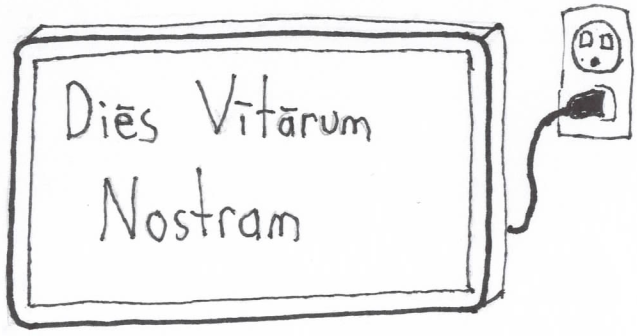 Diēs Vītārum
Nostram